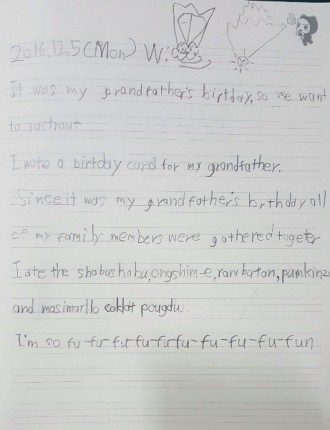 2016.12.5(Mon) W:
It was my grandfather's birtday, so we want
to rastraut
I wrote a birtday card for my grandfather.
Since it was my grandfather's birthday all
of my family members were gathered togeter
I ate the shabushabu, ongshim-e, raw
and masimarllo
I'm so fu-fu-fu-fu-fu-fu-fu-fu-fu-fun